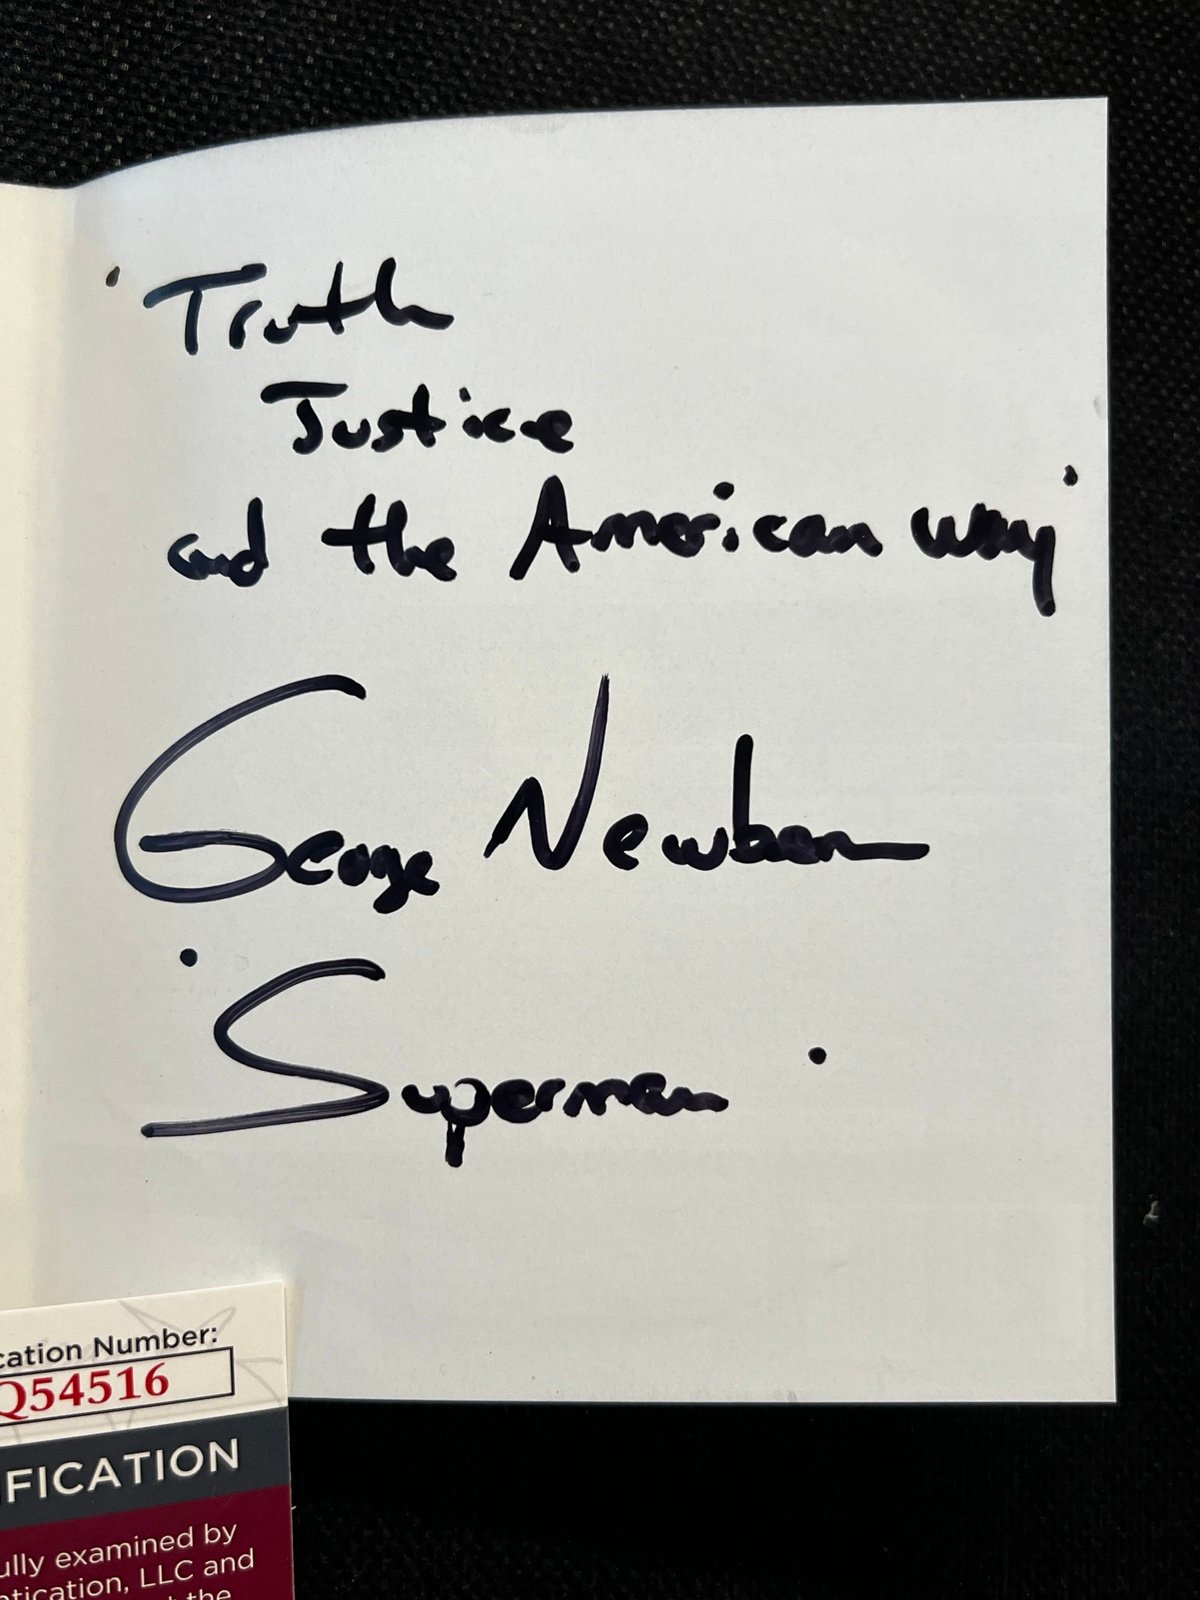 'Truth
Justice
and the American way'
George Newbern
'Superman'
cation Number:
Q54516
FICATION
ully examined by
ntication, LLC and
the